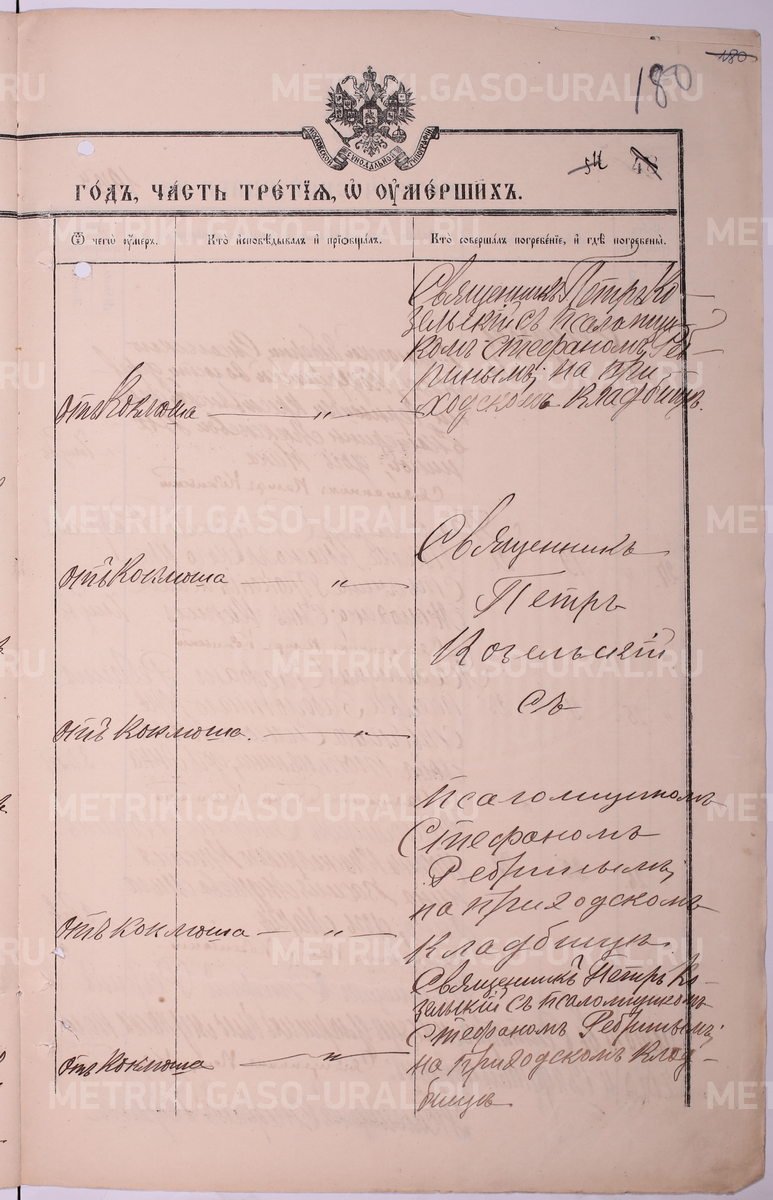 180
180
МОСКОВСКОЙ СѴНОДАЛЬНОЙ ТИПОГРАФІИ
54 48
ГО́ДЪ, ЧА́СТЬ ТРЕ́ТІЯ, Ѡ҆ ОУ҆МЕ́РШИХЪ.
Ѿ чегѡ̀ оу҆́меръ.
Кто̀ и҆сповѣ́дывалъ и҆ прїѡбща́лъ.
Кто̀ соверша́лъ погребе́нїе, и҆ гдѣ̀ погребены̀.
Священникъ Петръ Ко-
зельскій съ псаломщи-
комъ Стефаномъ Реб-
ринымъ; на при-
ходскомъ кладбищѣ.
отъ Коклюша — „ —
отъ Коклюша — „ —
Священникъ
Петръ
Козельскій
съ
отъ коклюша. — „ —
псаломщикомъ
Стефаномъ
Ребринымъ;
на приходскомъ
кладбищѣ.
отъ коклюша — „ —
Священникъ Петръ Ко-
зельскій съ псаломщикомъ
Стефаномъ Ребринымъ;
на приходскомъ клад-
бищѣ
отъ коклюша — „ —
METRIKI.GASO-URAL.RU